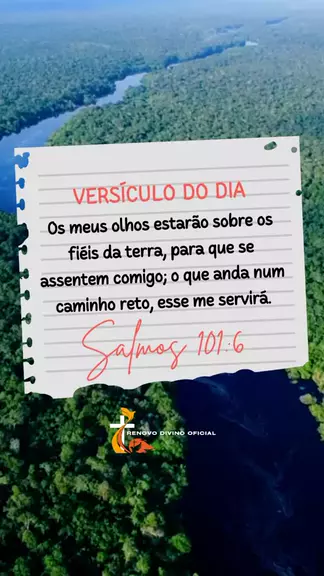 VERSÍCULO DO DIA
Os meus olhos estarão sobre os
fiéis da terra, para que se
assentem comigo; o que anda num
caminho reto, esse me servirá.
Salmos 101:6
RENOVO DIVINO OFICIAL